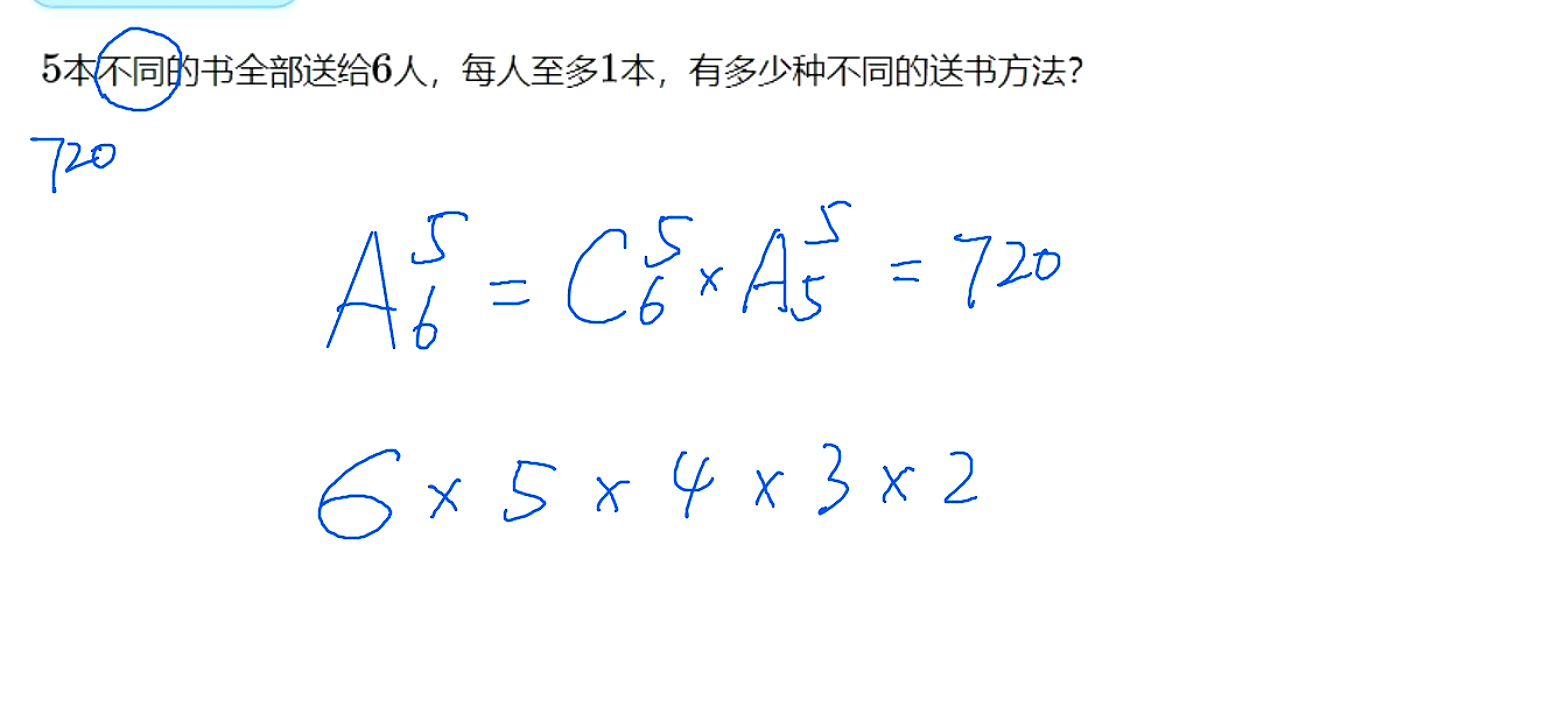 5本不同的书全部送给6人，每人至多1本，有多少种不同的送书方法？
720
A₆⁵ = C₆⁵ × A₅⁵ = 720
6 × 5 × 4 × 3 × 2